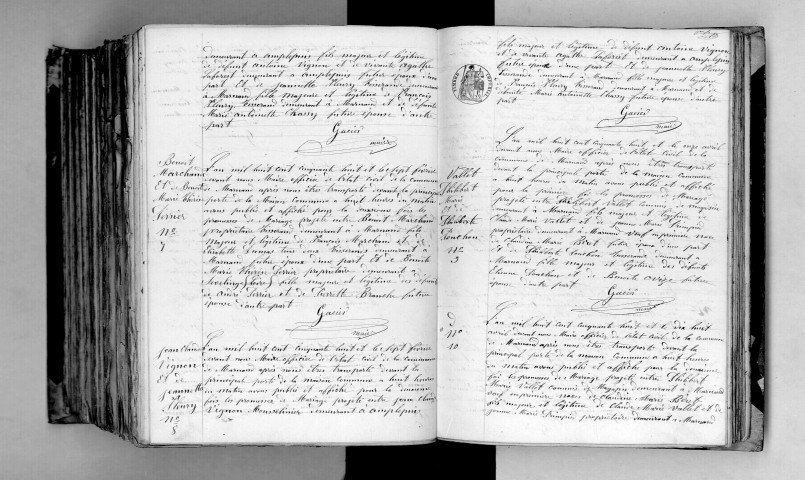 demeurant à amplepuis fils majeur et légitime
de défunt antoine Vignon et de vivante agathe
Laforest demeurant à amplepuis futur époux d'une
part Et de jeannette Fleury Tisserande demeurant
à Marnand fille majeure et légitime à François
Fleury Tisserand demeurant à Marnand et de défunte
Marie antoinette Chassy future épouse d'autre
part
Gacier
maire
Benoit
Marchand
Et de Benoite
Marie Thérèse
Perrier
N°
7
L'an mil huit cent cinquante huit et le sept février
devant nous Maire officier de l'état civil de la commune
de Marnand après nous être transporté devant la principale
porte de la Maison Commune à huit heures du matin
avons publié et affiché pour la seconde fois les
promesses de Mariage projeté entre Benoit Marchand
propriétaire Tisserand demeurant à Marnand fils
Majeur et légitime de François Marchand et de
Elisabeth tous deux Tisserands demeurant à
Marnand futur époux d'une part Et de Benoite
Marie Thérèse Perrier propriétaire demeurant à
(Loire) fille majeure et légitime des défunts
Perrier et de Pierrette future
épouse d'autre part
Gacier
maire
Jean Claude
Vignon
Et de
Jeannette
Fleury
N°
8
L'an mil huit cent cinquante huit et le sept février
devant nous Maire officier de l'état civil de la commune
de Marnand après nous être transporté devant la
principale porte de la maison commune à huit heures
du matin avons publié et affiché pour la
fois les promesses de Mariage projeté entre jean Claude
Vignon Mousselinier demeurant à amplepuis
fils majeur et légitime de défunt antoine Vignon
et de vivante agathe Laforest demeurant à amplepuis
futur époux d'une part Et de jeannette Fleury
Tisserande demeurant à Marnand fille majeure et légitime
de François Fleury Tisserand demeurant à Marnand et de
défunte Marie Antoinette Chassy future épouse d'autre
part
Gacier
maire
Vallet
Philibert
Marie
Et de
Philiberte
Fouchon
N°
9
L'an mil huit cent cinquante huit et le onze avril
devant nous Maire officier de l'état civil de la
commune de Marnand après nous être transporté
devant la principale porte de la maison commune
à huit heures du matin avons publié et affiché
pour la première fois les promesses de Mariage
projeté entre Philibert Vallet commis de magasin
demeurant à Marnand fils majeur et légitime de
Claire Marie Vallet et de jeanne Marie
propriétaire demeurant à Marnand veuf en premières noces
de Claudine Marie Béret futur époux d'une part
Et Philiberte Fouchon Tisserande demeurant à
Marnand fille majeure et légitime des défunts
Etienne Fouchon et de Benoite future
épouse d'autre part
Gacier
maire
d°
N°
10
L'an mil huit cent cinquante huit et le dix huit
avril devant nous Maire officier de l'état civil de la commune
de Marnand après nous être transporté devant la
principale porte de la maison commune à huit heures
du matin avons publié et affiché pour la seconde
fois les promesses de Mariage projeté entre Philibert
Marie Vallet commis de Magasin demeurant à Marnand
veuf en premières noces de Claudine Marie Béret
fils majeur et légitime de Claire Marie Vallet et de
jeanne Marie propriétaire demeurant à Marnand